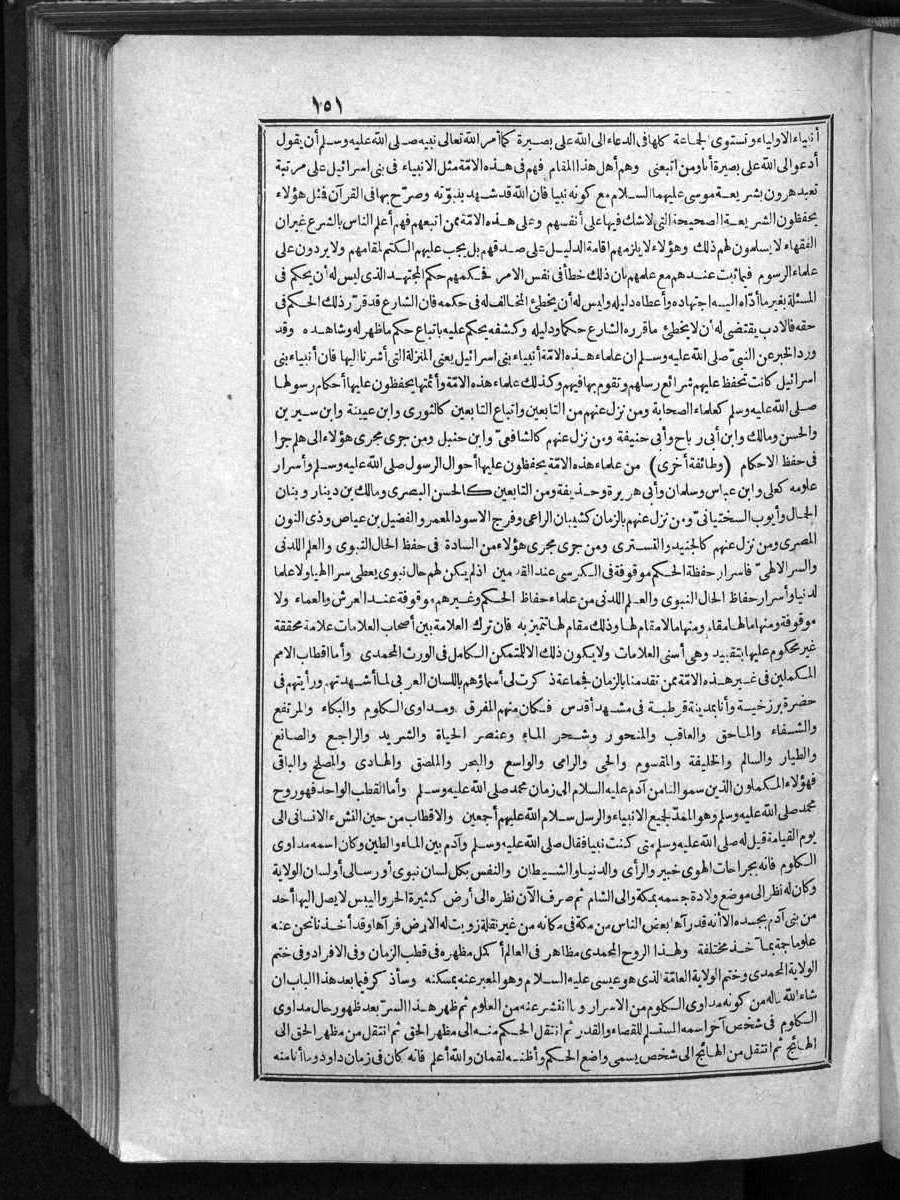 ١٥١
أنبياء الاولياء وتستوى الجماعة كلها فى الدعاء الى الله على بصيرة كما أمر الله تعالى نبيه صلى الله عليه وسلم أن يقول
أدعو الى الله على بصيرة أنا ومن اتبعنى وهم أهل هذا المقام فهم فى هذه الامّة مثل الانبياء فى بنى اسرائيل على مرتبة
تعبد هرون بشريعة موسى عليهما السلام مع كونه نبيا فان الله قد شهد بنبوّته وصرّح بها فى القرآن فمثل هؤلاء
يحفظون الشريعة الصحيحة التى لاشك فيها على أنفسهم وعلى هذه الامّة ممن اتبعهم فهم أعلم الناس بالشرع غير ان
الفقهاء لا يسلمون لهم ذلك وهؤلاء لا يلزمهم اقامة الدليل على صدقهم بل يجب عليهم الكتم لمقامهم ولا يردون على
علماء الرسوم فيما ثبت عندهم مع علمهم بان ذلك خطأ فى نفس الامر فحكمهم حكم المجتهد الذى ليس له أن يحكم فى
المسئلة بغير ما أدّاه اليه اجتهاده وأعطاه دليله وليس له أن يخطئ المخالف له فى حكمه فان الشارع قد قرّر ذلك الحكم فى
حقه فالادب يقتضى له أن لا يخطئ ماقرره الشارع حكما ودليله وكشفه يحكم عليه باتباع حكم ماظهر له وشاهده وقد
ورد الخبر عن النبىّ صلى الله عليه وسلم ان علماء هذه الامّة أنبياء بنى اسرائيل يعنى المنزلة التى أشرنا اليها فان أنبياء بنى
اسرائيل كانت تحفظ عليهم شرائع رسلهم وتقوم بها فيهم وكذلك علماء هذه الامّة وأئمتها يحفظون عليها أحكام رسولها
صلى الله عليه وسلم كعلماء الصحابة ومن نزل عنهم من التابعين واتباع التابعين كالثورى وابن عيينة وابن سيرين
والحسن ومالك وابن أبى رباح وأبى حنيفة ومن نزل عنهم كالشافعىّ وابن حنبل ومن جرى مجرى هؤلاء الى هلم جرا
فى حفظ الاحكام (وطائفة أخرى) من علماء هذه الامّة يحفظون عليها أحوال الرسول صلى الله عليه وسلم وأسرار
علومه كعلى وابن عباس وسلمان وأبى هريرة وحذيفة ومن التابعين كالحسن البصرى ومالك بن دينار وبنان
الجمال وأيوب السختيانىّ ومن نزل عنهم بالزمان كشيبان الراعى وفرج الاسود المعمر والفضيل بن عياض وذى النون
المصرى ومن نزل عنهم كالجنيد والتسترى ومن جرى مجرى هؤلاء من السادة فى حفظ الحال النبوى والعلم اللدنى
والسر الالهىّ فاسرار حفظة الحكم موقوفة فى الكرسى عند القدمين اذ لم يكن لهم حال نبوى يعطى سرا الهيا ولا علما
لدنيا وأسرار حفاظ الحال النبوى والعلم اللدنى من علماء حفاظ الحكم وغيرهم موقوفة عند العرش والعماء ولا
موقوفة ومنها ما لها مقام ومنها ما لا مقام لها وذلك مقام لها تتميز به فان ترك العلامة بين أصحاب العلامات علامة محققة
غير محكوم عليها بتقييد وهى أسنى العلامات ولا يكون ذلك الا للمتمكن الكامل فى الورث المحمدى وأما اقطاب الامم
المكملين فى غير هذه الامّة ممن تقدمنا بالزمان فجماعة ذكرت لى أسماؤهم باللسان العربى لما أشهدتهم ورأيتهم فى
حضرة برزخية وأنا بمدينة قرطبة فى مشهد أقدس فكان منهم المفرق ومداوى الكلوم والبكاء والمرتفع
والشفاء والماحق والعاقب والمنحور وشحر الماء وعنصر الحياة والشريد والراجع والصانع
والطيار والسالم والخليفة والمقسوم والحى والرامى والواسع والبحر والملصق والهادى والمصلح والباقى
فهؤلاء المكملون الذين سموا لنا من آدم عليه السلام الى زمان محمد صلى الله عليه وسلم وأما القطب الواحد فهو روح
محمد صلى الله عليه وسلم وهو الممدّ لجميع الانبياء والرسل سلام الله عليهم أجمعين والاقطاب من حين النشء الانسانى الى
يوم القيامة قيل له صلى الله عليه وسلم متى كنت نبيا فقال صلى الله عليه وسلم وآدم بين الماء والطين وكان اسمه مداوى
الكلوم فانه بجراحات الهوى خبير والرأى والدنيا والشيطان والنفس بكل لسان نبوى أو رسالى أو لسان الولاية
وكان له نظر الى موضع ولادة جسمه بمكة والى الشام ثم صرف الآن نظره الى أرض كثيرة الحر واليبس لا يصل اليها أحد
من بنى آدم بجسده الا أنه قدرآها بعض الناس من مكة فى مكانه من غير نقلة زويت له الارض فرآها وقد أخذنا نحن عنه
علوما جمة بما خذ مختلفة ولهذا الروح المحمدى مظاهر فى العالم أكمل مظهره فى قطب الزمان وفى الافراد وفى ختم
الولاية المحمدى وختم الولاية العامّة الذى هو عيسى عليه السلام وهو المعبر عنه بمسكنه وسأذكر فيما بعد هذا الباب ان
شاء الله ماله من كونه مداوى الكلوم من الاسرار وما انتشر عنه من العلوم ثم ظهر هذا السرّ بعد ظهور حال مداوى
الكلوم فى شخص آخر اسمه المستسلم للقضاء والقدر ثم انتقل الحكم منه الى مظهر الحق ثم انتقل من مظهر الحق الى
الهائج ثم انتقل من الهائج الى شخص يسمى واضع الحكم وأظنه لقمان والله أعلم فانه كان فى زمان داود وما أنا منه